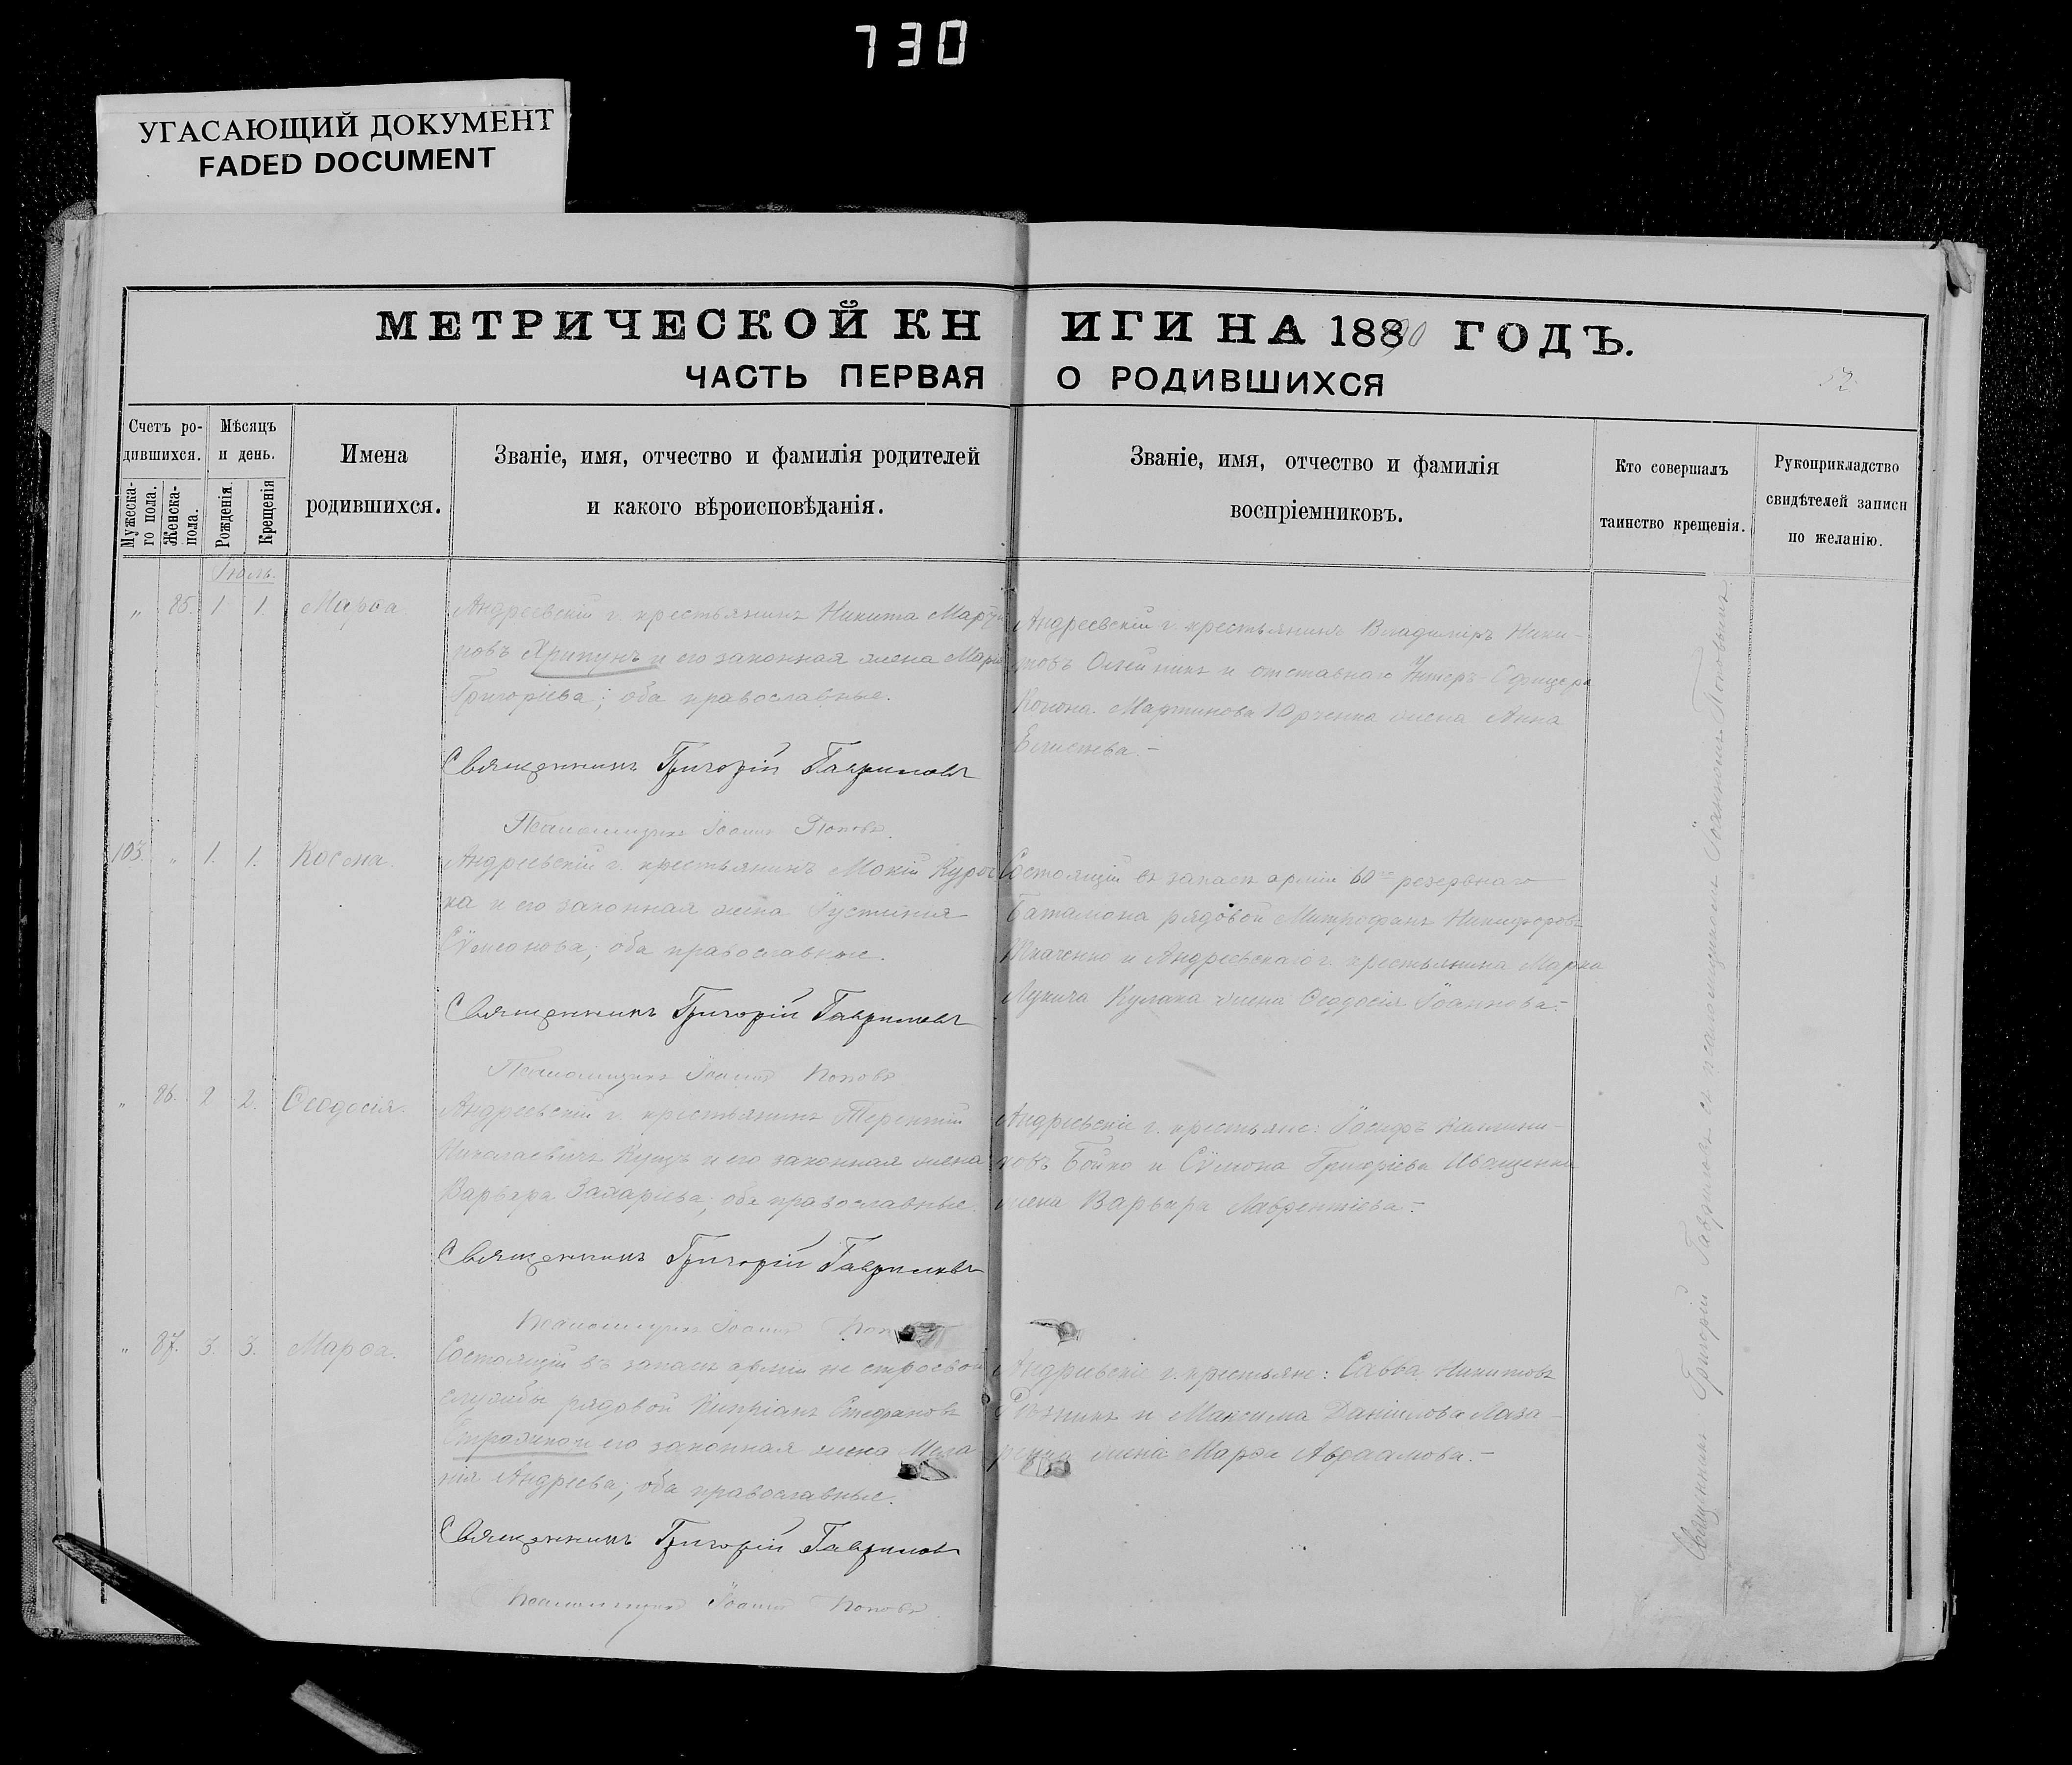 730
УГАСАЮЩИЙ ДОКУМЕНТ
FADED DOCUMENT
МЕТРИЧЕСКОЙ КНИГИ НА 1890 ГОДЪ.
ЧАСТЬ ПЕРВАЯ О РОДИВШИХСЯ
Счетъ ро-
дившихся.
Мужеска-
го пола.
Женска-
пола.
Мѣсяцъ
и день.
Рожденія.
Крещенія
Имена
родившихся.
Званіе, имя, отчество и фамилія родителей
и какого вѣроисповѣданія.
Званіе, имя, отчество и фамилія
воспріемниковъ.
Кто совершалъ
таинство крещенія.
Рукоприкладство
свидѣтелей записи
по желанію.
Іюль.
„ 85. 1 1. Марѳа
Андреевскій г. крестьянинъ Никита
новъ Хрипунъ и его законная жена Марія
Григоріева; оба православные.
Священникъ Григорій Гавриловъ
Псаломщикъ Іоаннъ Поповъ.
Андреевскій г. крестьянинъ Владиміръ Ники-
товъ Олейникъ и отставнаго Унтеръ-Офицера
Конона Мартинова Юрченка жена Анна
103. „ 1. 1. Косма.
Андреевскій г. крестьянинъ Мокій
ка и его законная жена Іустинія
оба православные.
Священникъ Григорій Гавриловъ
Псаломщикъ Іоаннъ Поповъ
Состоящій въ запасѣ арміи 60го резервнаго
Баталіона рядовой Митрофанъ Никифоровъ
Ткаченко и Андреевскаго г. крестьянина Марка
Лукича Кулака жена Ѳеодосія Іоаннова.-
„ 86. 2 2. Ѳеодосія.
Андреевскій г. крестьянинъ Терентій
Николаевичъ Куцъ и его законная жена
Варвара Захаріева; оба православные.
Священникъ Григорій Гавриловъ
Псаломщикъ Іоаннъ
Андреевскіе г. крестьяне: Іосифъ Каллини-
ковъ Бойко и Сѵмона Григоріева Иващенка
жена Варвара Лаврентіева.-
„ 87. 3. 3. Марѳа.
Состоящій въ запасѣ арміи не строевой
службы рядовой Кипріанъ Стефановъ
и его законная жена Мела
нія Андреева; оба православные.
Священникъ Григорій Гавриловъ
Псаломщикъ Іоаннъ Поповъ
Андреевскіе г. крестьяне: Савва Никитовъ
Рѣзникъ и Максима Даніилова Лаза-
ренка жена Марѳа Авраамова.-
Священникъ Григорій Гавриловъ съ псаломщикомъ Іоанномъ Поповымъ.